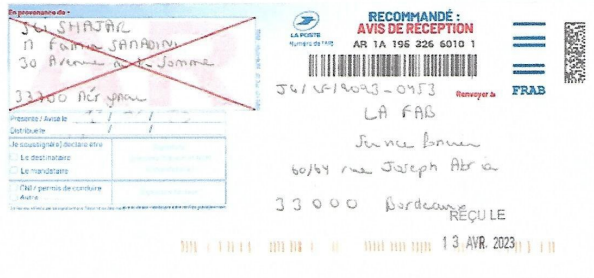 En provenance de :
SCI SHAJAR
M
30 Avenue de la Somme
33700 Mérignac
Présenté / Avisé le : / /
Distribué le : / /
Je soussigné(e) déclare être
Le destinataire
Le mandataire
CNI / permis de conduire
Autre
LA POSTE
Numéro de l'AR :
RECOMMANDÉ :
AVIS DE RÉCEPTION
AR 1A 196 326 6010 1
Renvoyer à
FRAB
LA FAB
60/64 rue Joseph Abria
33000 Bordeaux
REÇU LE
13 AVR. 2023